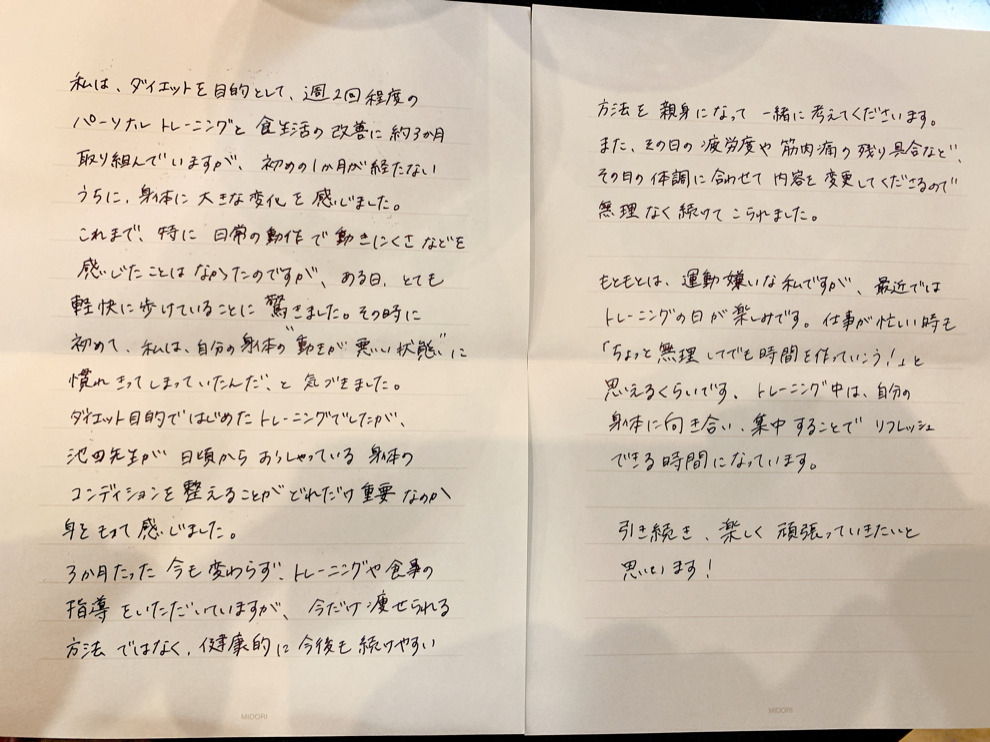 私は、ダイエットを目的として、週2回程度の
パーソナルトレーニングと食生活の改善に約3か月
取り組んでいますが、初めの1か月が経たない
うちに、身体に大きな変化を感じました。
これまで、特に日常の動作で動きにくさなどを
感じたことはなかったのですが、ある日、とても
軽快に歩けていることに驚きました。その時に
初めて、私は、自分の身体の"動きが悪い状態"に
慣れきってしまっていたんだ、と気づきました。
ダイエット目的ではじめたトレーニングでしたが、
池田先生が日頃からおっしゃっている身体の
コンディションを整えることがどれだけ重要なのか
身をもって感じました。
3か月たった今も変わらず、トレーニングや食事の
指導をいただいていますが、今だけ痩せられる
方法ではなく、健康的に今後も続けやすい
MIDORI
方法を親身になって一緒に考えてくださいます。
また、その日の疲労度や筋肉痛の残り具合など、
その日の体調に合わせて内容を変更してくださるので
無理なく続けてこられました。
もともとは、運動嫌いな私ですが、最近では
トレーニングの日が楽しみです。仕事が忙しい時も
「ちょっと無理してでも時間を作っていこう!」と
思えるくらいです。トレーニング中は、自分の
身体に向き合い、集中することでリフレッシュ
できる時間になっています。
引き続き、楽しく頑張っていきたいと
思います!
MIDORI